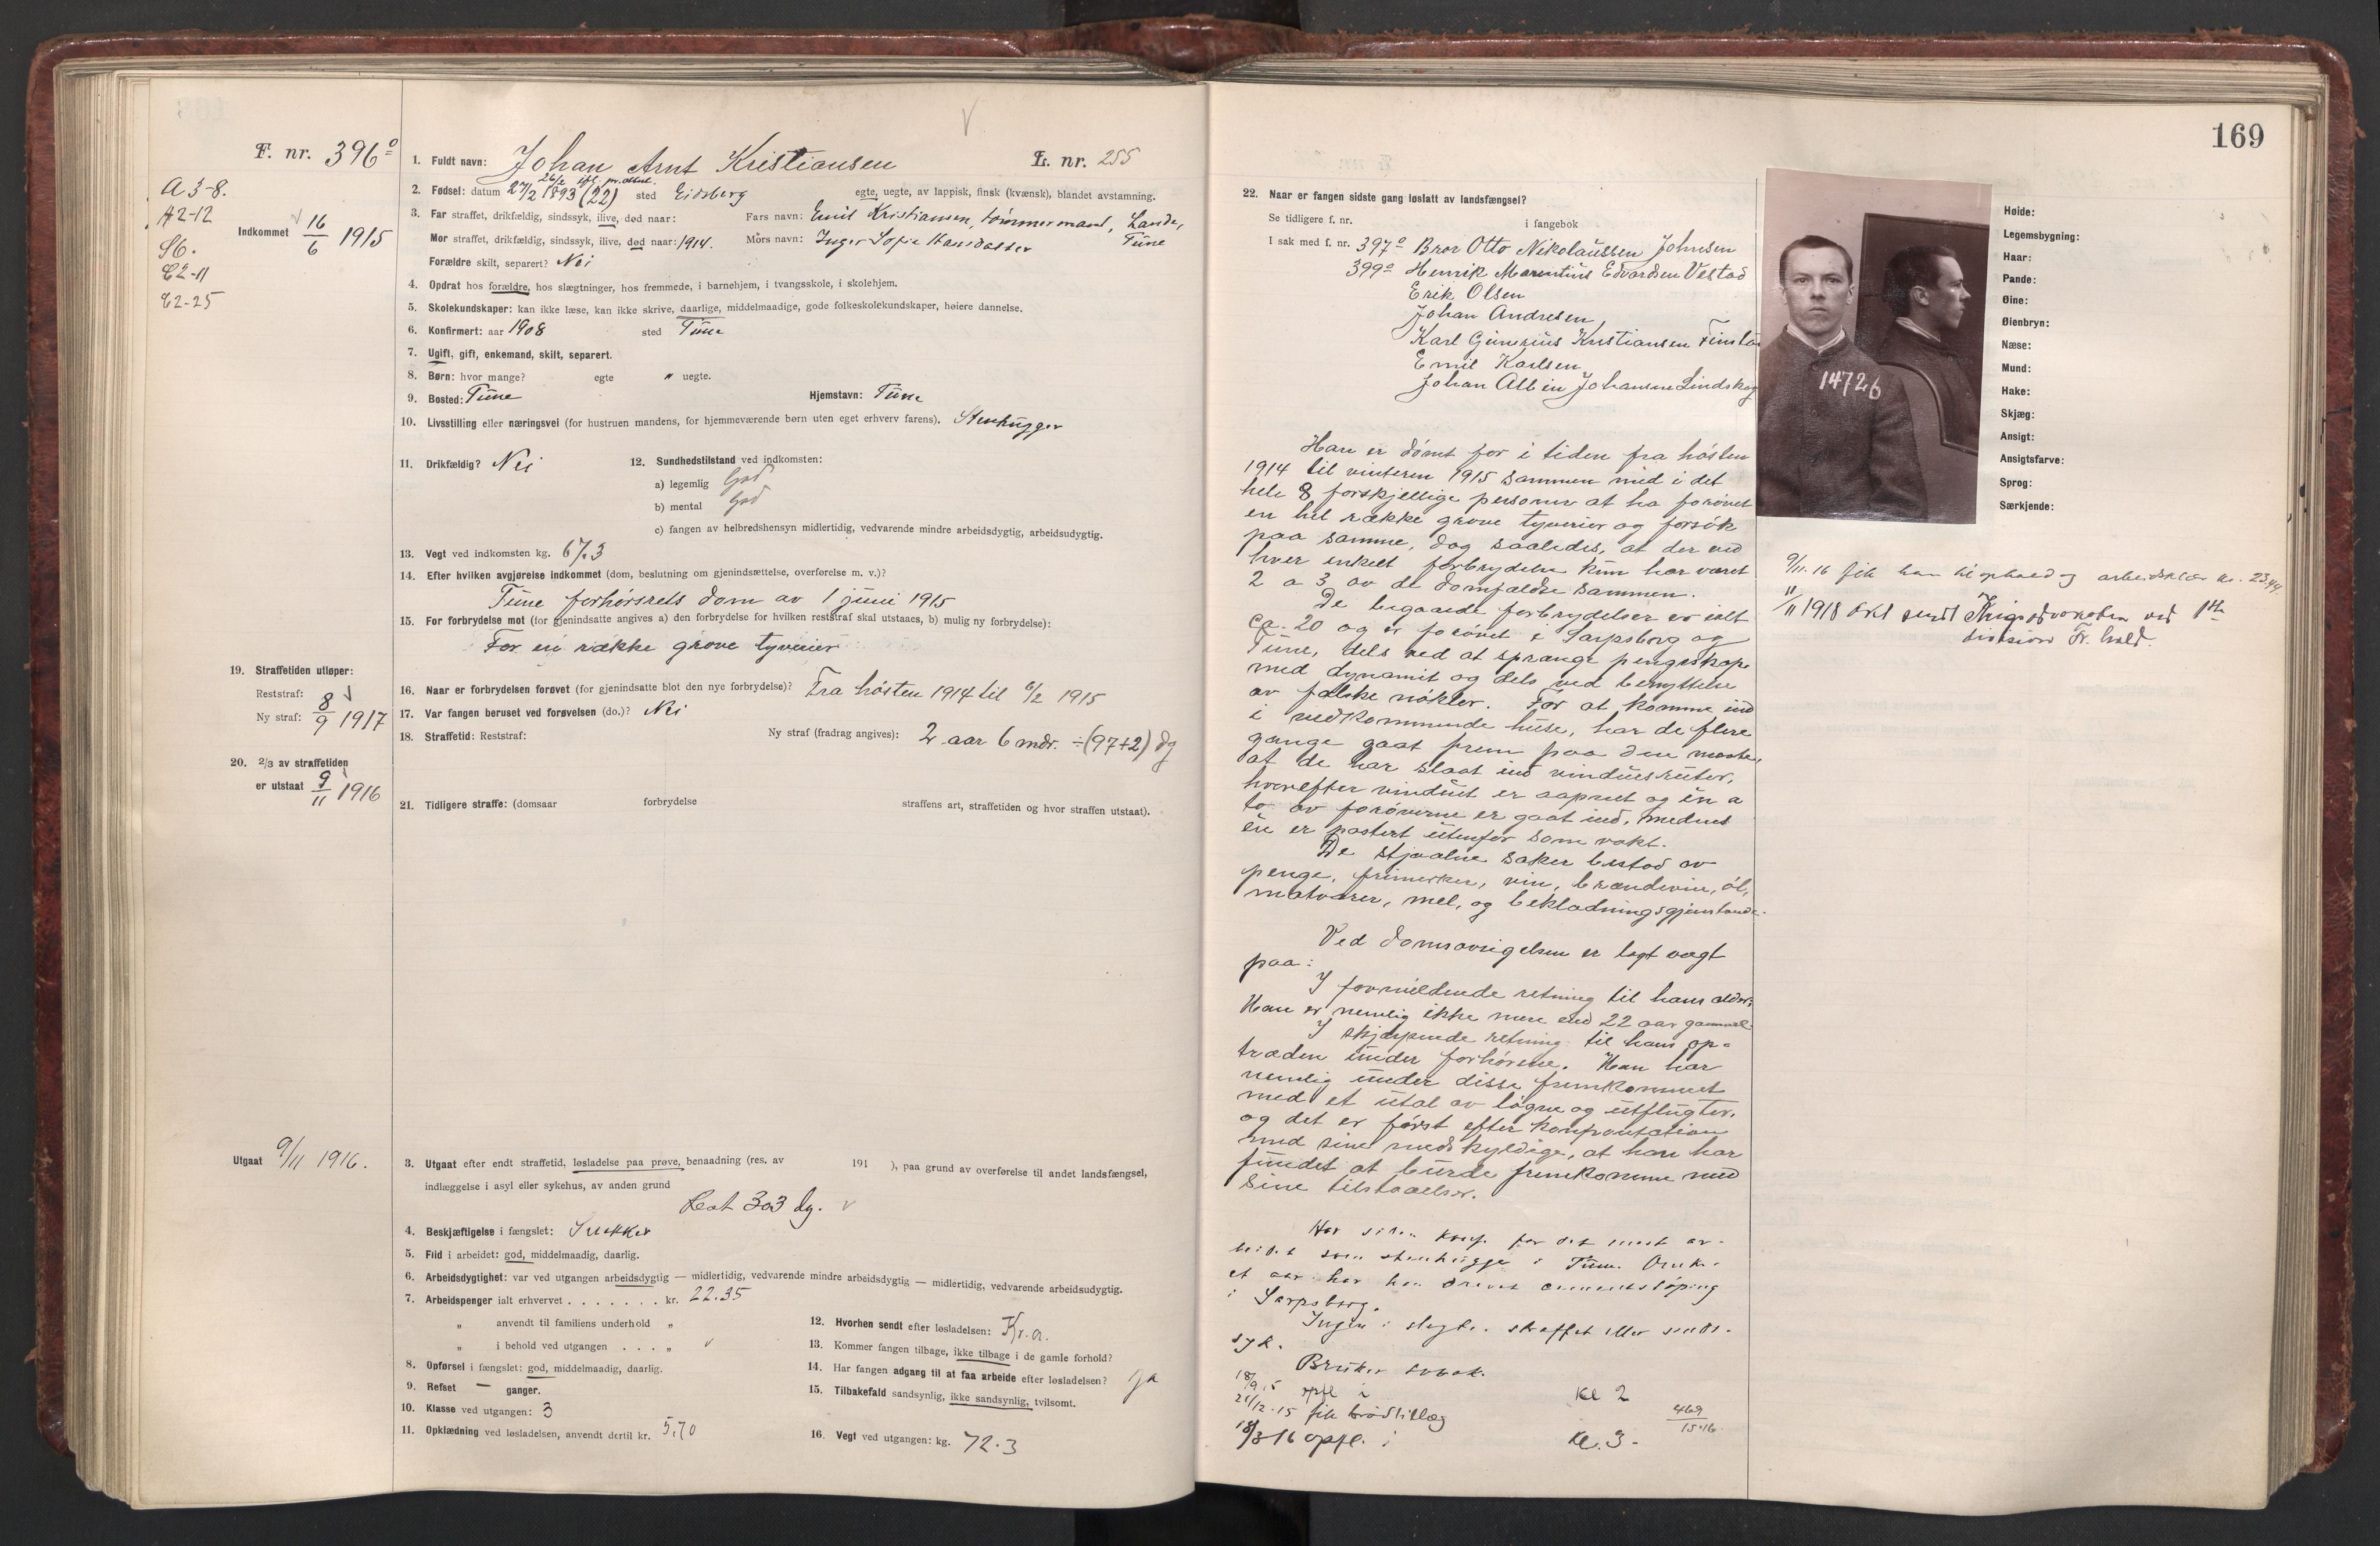 F. nr. 396°
A 3-8.
A2-12
S6.
C2-11
C2-25
Indkommet 16/6 1915
1. Fuldt navn: Johan Arnt Kristiansen L. nr. 255
26/2 ifl. pr.attest.
2. Fødsel: datum 27/2 1893 (22) sted Eidsberg egte, uegte, av lappisk, finsk (kvænsk), blandet avstamning.
3. Far straffet, drikfældig, sindssyk, ilive, død naar: Fars navn: Emil Kristiansen, tømmermand, Lande,
Tune
Mor straffet, drikfældig, sindssyk, ilive, død naar: 1914. Mors navn: Inger Sofie Hansdatter
Forældre skilt, separert? Nei
4. Opdrat hos forældre, hos slægtninger, hos fremmede, i barnehjem, i tvangsskole, i skolehjem.
5. Skolekundskaper: kan ikke læse, kan ikke skrive, daarlige, middelmaadige, gode folkeskolekundskaper, høiere dannelse.
6. Konfirmert: aar 1908 sted Tune
7. Ugift, gift, enkemand, skilt, separert.
8. Børn: hvor mange? egte " uegte.
9. Bosted: Tune Hjemstavn: Tune
10. Livsstilling eller næringsvei (for hustruen mandens, for hjemmeværende børn uten eget erhverv farens). Stenhugger
11. Drikfældig? Nei 12. Sundhedstilstand ved indkomsten:
a) legemlig God
b) mental God
c) fangen av helbredshensyn midlertidig, vedvarende mindre arbeidsdygtig, arbeidsudygtig.
13. Vegt ved indkomsten kg. 67.3
14. Efter hvilken avgjørelse indkommet (dom, beslutning om gjenindsættelse, overførelse m. v.)?
Tune forhørsrets dom av 1 juni 1915
15. For forbrydelse mot (for gjenindsatte angives a) den forbrydelse for hvilken reststraf skal utstaaes, b) mulig ny forbrydelse):
For en række grove tyverier
19. Straffetiden utløper:
Reststraf:
Ny straf: 8/9 1917
16. Naar er forbrydelsen forøvet (for gjenindsatte blot den nye forbrydelse)? Fra høsten 1914 til 6/2 1915
17. Var fangen beruset ved forøvelsen (do.)? Nei
18. Straffetid: Reststraf: Ny straf (fradrag angives): 2 aar 6 mdr. ÷ (97+2) dg
20. 2/3 av straffetiden
er utstaat 9/11 1916
21. Tidligere straffe: (domsaar forbrydelse straffens art, straffetiden og hvor straffen utstaat).
Utgaat 9/11 1916.
3. Utgaat efter endt straffetid, løsladelse paa prøve, benaadning (res. av 191 ), paa grund av overførelse til andet landsfængsel,
indlæggelse i asyl eller sykehus, av anden grund
Rest 303 dg.
4. Beskjæftigelse i fængslet: Snekker
5. Flid i arbeidet: god, middelmaadig, daarlig.
6. Arbeidsdygtighet: var ved utgangen arbeidsdygtig — midlertidig, vedvarende mindre arbeidsdygtig — midlertidig, vedvarende arbeidsudygtig.
7. Arbeidspenger ialt erhvervet . . . . . . . kr. 22.35
" anvendt til familiens underhold "
" i behold ved utgangen . . . "
8. Opførsel i fængslet: god, middelmaadig, daarlig.
9. Refset — ganger.
10. Klasse ved utgangen: 3
11. Opklædning ved løsladelsen, anvendt dertil kr. 5,70
12. Hvorhen sendt efter løsladelsen: Kr.a.
13. Kommer fangen tilbage, ikke tilbage i de gamle forhold?
14. Har fangen adgang til at faa arbeide efter løsladelsen? Ja
15. Tilbakefald sandsynlig, ikke sandsynlig, tvilsomt.
16. Vegt ved utgangen: kg. 72.3
169
22. Naar er fangen sidste gang løslatt av landsfængsel?
Se tidligere f. nr. i fangebok
I sak med f. nr. 397° Bror Otto Nikolaussen Johnsen
399° Henrik Marentius Edvardsen Vestad
Erik Olsen
Johan Andresen
Karl Gunerius Kristiansen
Emil Karlsen
Johan Albin Johansen Lindskog
14726
Høide:
Legemsbygning:
Haar:
Pande:
Øine:
Øienbryn:
Næse:
Mund:
Hake:
Skjæg:
Ansigt:
Ansigtsfarve:
Sprog:
Særkjende:
Han er dømt for i tiden fra høsten
1914 til vinteren 1915 sammen med i det
hele 8 forskjellige personer at ha forøvet
en hel række grove tyverier og forsøk
paa samme, dog saaledes, at der ved
hver enkelt forbrydelse kun har været
2 a 3 av de domfældte sammen.
De begaaede forbrydelser er ialt
ca. 20 og er forøvet i Sarpsborg og
Tune, dels ved at sprænge pengeskape
med dynamit og dels ved benyttelse
av falske nøkler. For at komme ind
i vedkommende huse, har de flere
gange gaat frem paa den maate,
at de har slaat ind vinduesruter,
hvorefter vinduet er aapnet og én a
to av forøverne er gaat ind, medens
én er postert utenfor som vakt.
De stjaalne saker bestod av
penge, frimerker, vin, brændevin, øl,
matvarer, mel, og beklædningsgjenstande.
Ved domsavsigelsen er lagt vægt
paa:
I formildende retning til hans alder:
Han er nemlig ikke mere end 22 aar gammel.
I skjærpende retning til hans op-
træden under forhørene. Han har
nemlig under disse fremkommet
med et utal av løgne og utflugter,
og det er først efter konfrontation
med sine medskyldige, at han har
fundet at burde fremkomme med
sine tilstaaelser.
Har siden konf. for det mest ar-
beidet som stenhugger i Tune.
et aar har han drevet cementstøping
i Sarpsborg.
Ingen i slegte. straffet eller sinds-
syk.
Bruker tobak.
18/9 15 opfl i Kl 2
21/12-15 fik brødtillæg
18/3 16 opfl. i Kl. 3-
469
15-16
9/11.16 fik han til ophold og arbeidsklær kr. 23,44
11/11 1918 sendt Krigsadvokaten ved 1ste
division Fr.hald.